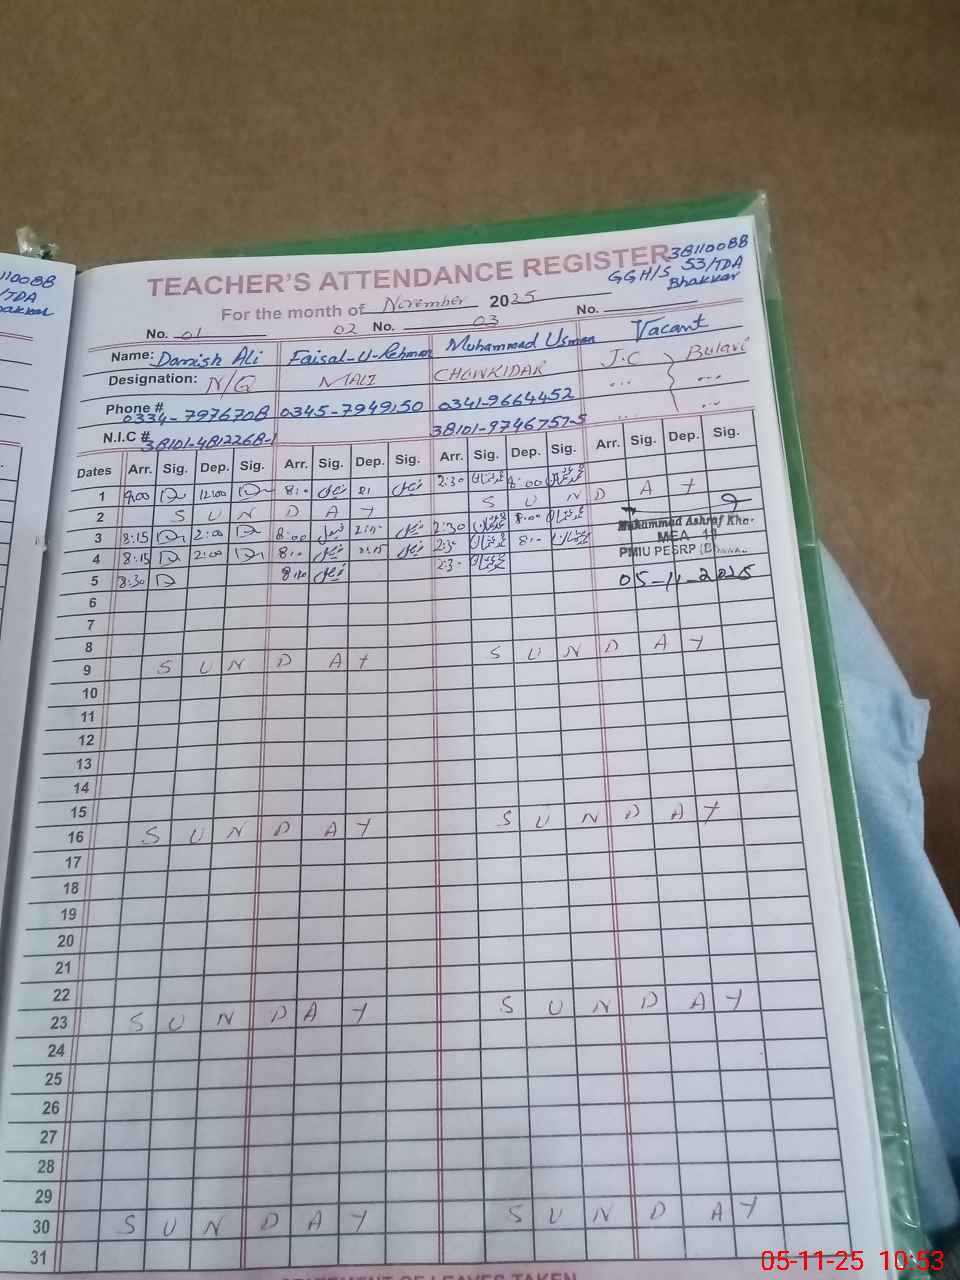 1100BB
/TDA
TEACHER'S ATTENDANCE REGISTER
381100BB
GGH/S 53/TDA
Bhakkar
For the month of November 2025
No. 01 02 No. 03 No.
Name: Danish Ali Faisal-U-Rehman Muhammad Usman Vacant
Designation: N/Q MALI CHOWKIDAR J.C Bulavi
Phone # 0334-7976708 0345-7949150 0341-9664452
N.I.C # 38101-4812268-1 38101-9746757-5
Dates Arr. Sig. Dep. Sig. Arr. Sig. Dep. Sig. Arr. Sig. Dep. Sig. Arr. Sig. Dep. Sig.
1 9:00 12:00 2:30 8:00
2 S U N D A Y S U N D A Y
3 8:15 2:00 8:00 2:30 8:00
4 8:15 2:00 2:30
5 8:30 2:30
Muhammad Ashraf
MEA
PMIU PESRP
05-11-2025
6
7
8
9 S U N D A Y S U N D A Y
10
11
12
13
14
15
16 S U N D A Y S U N D A Y
17
18
19
20
21
22
23 S U N D A Y S U N D A Y
24
25
26
27
28
29
30 S U N D A Y S U N D A Y
31
STATEMENT OF LEAVES TAKEN
05-11-25 10:53